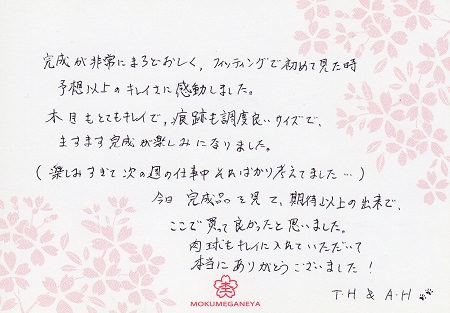 完成が非常にまちどおしく、フィッティングで初めて見た時
予想以上のキレイさに感動しました。
木目もとてもキレイで、痕跡も調度良いサイズで、
ますます完成が楽しみになりました。
(楽しみすぎて次の週の仕事中そればかり考えてました…)
今日 完成品を見て、期待以上の出来で、
ここで買って良かったと思いました。
肉球もキレイに入れていただいて
本当にありがとうございました!
T・H & A・H
MOKUMEGANEYA